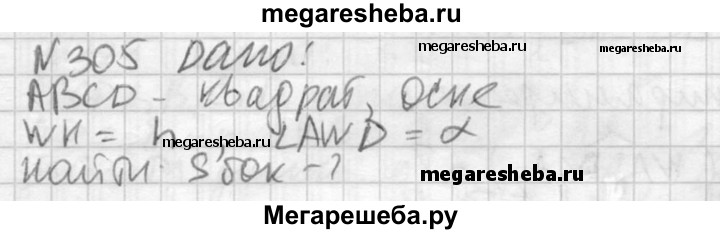 megaresheba.ru
N 305 Дано:
megaresheba.ru
ABCD - квадрат, осне
WH = h, ∠AWD = α
megaresheba.ru
Найти: Sбок - ?
megaresheba.ru
Мегарешеба.ру